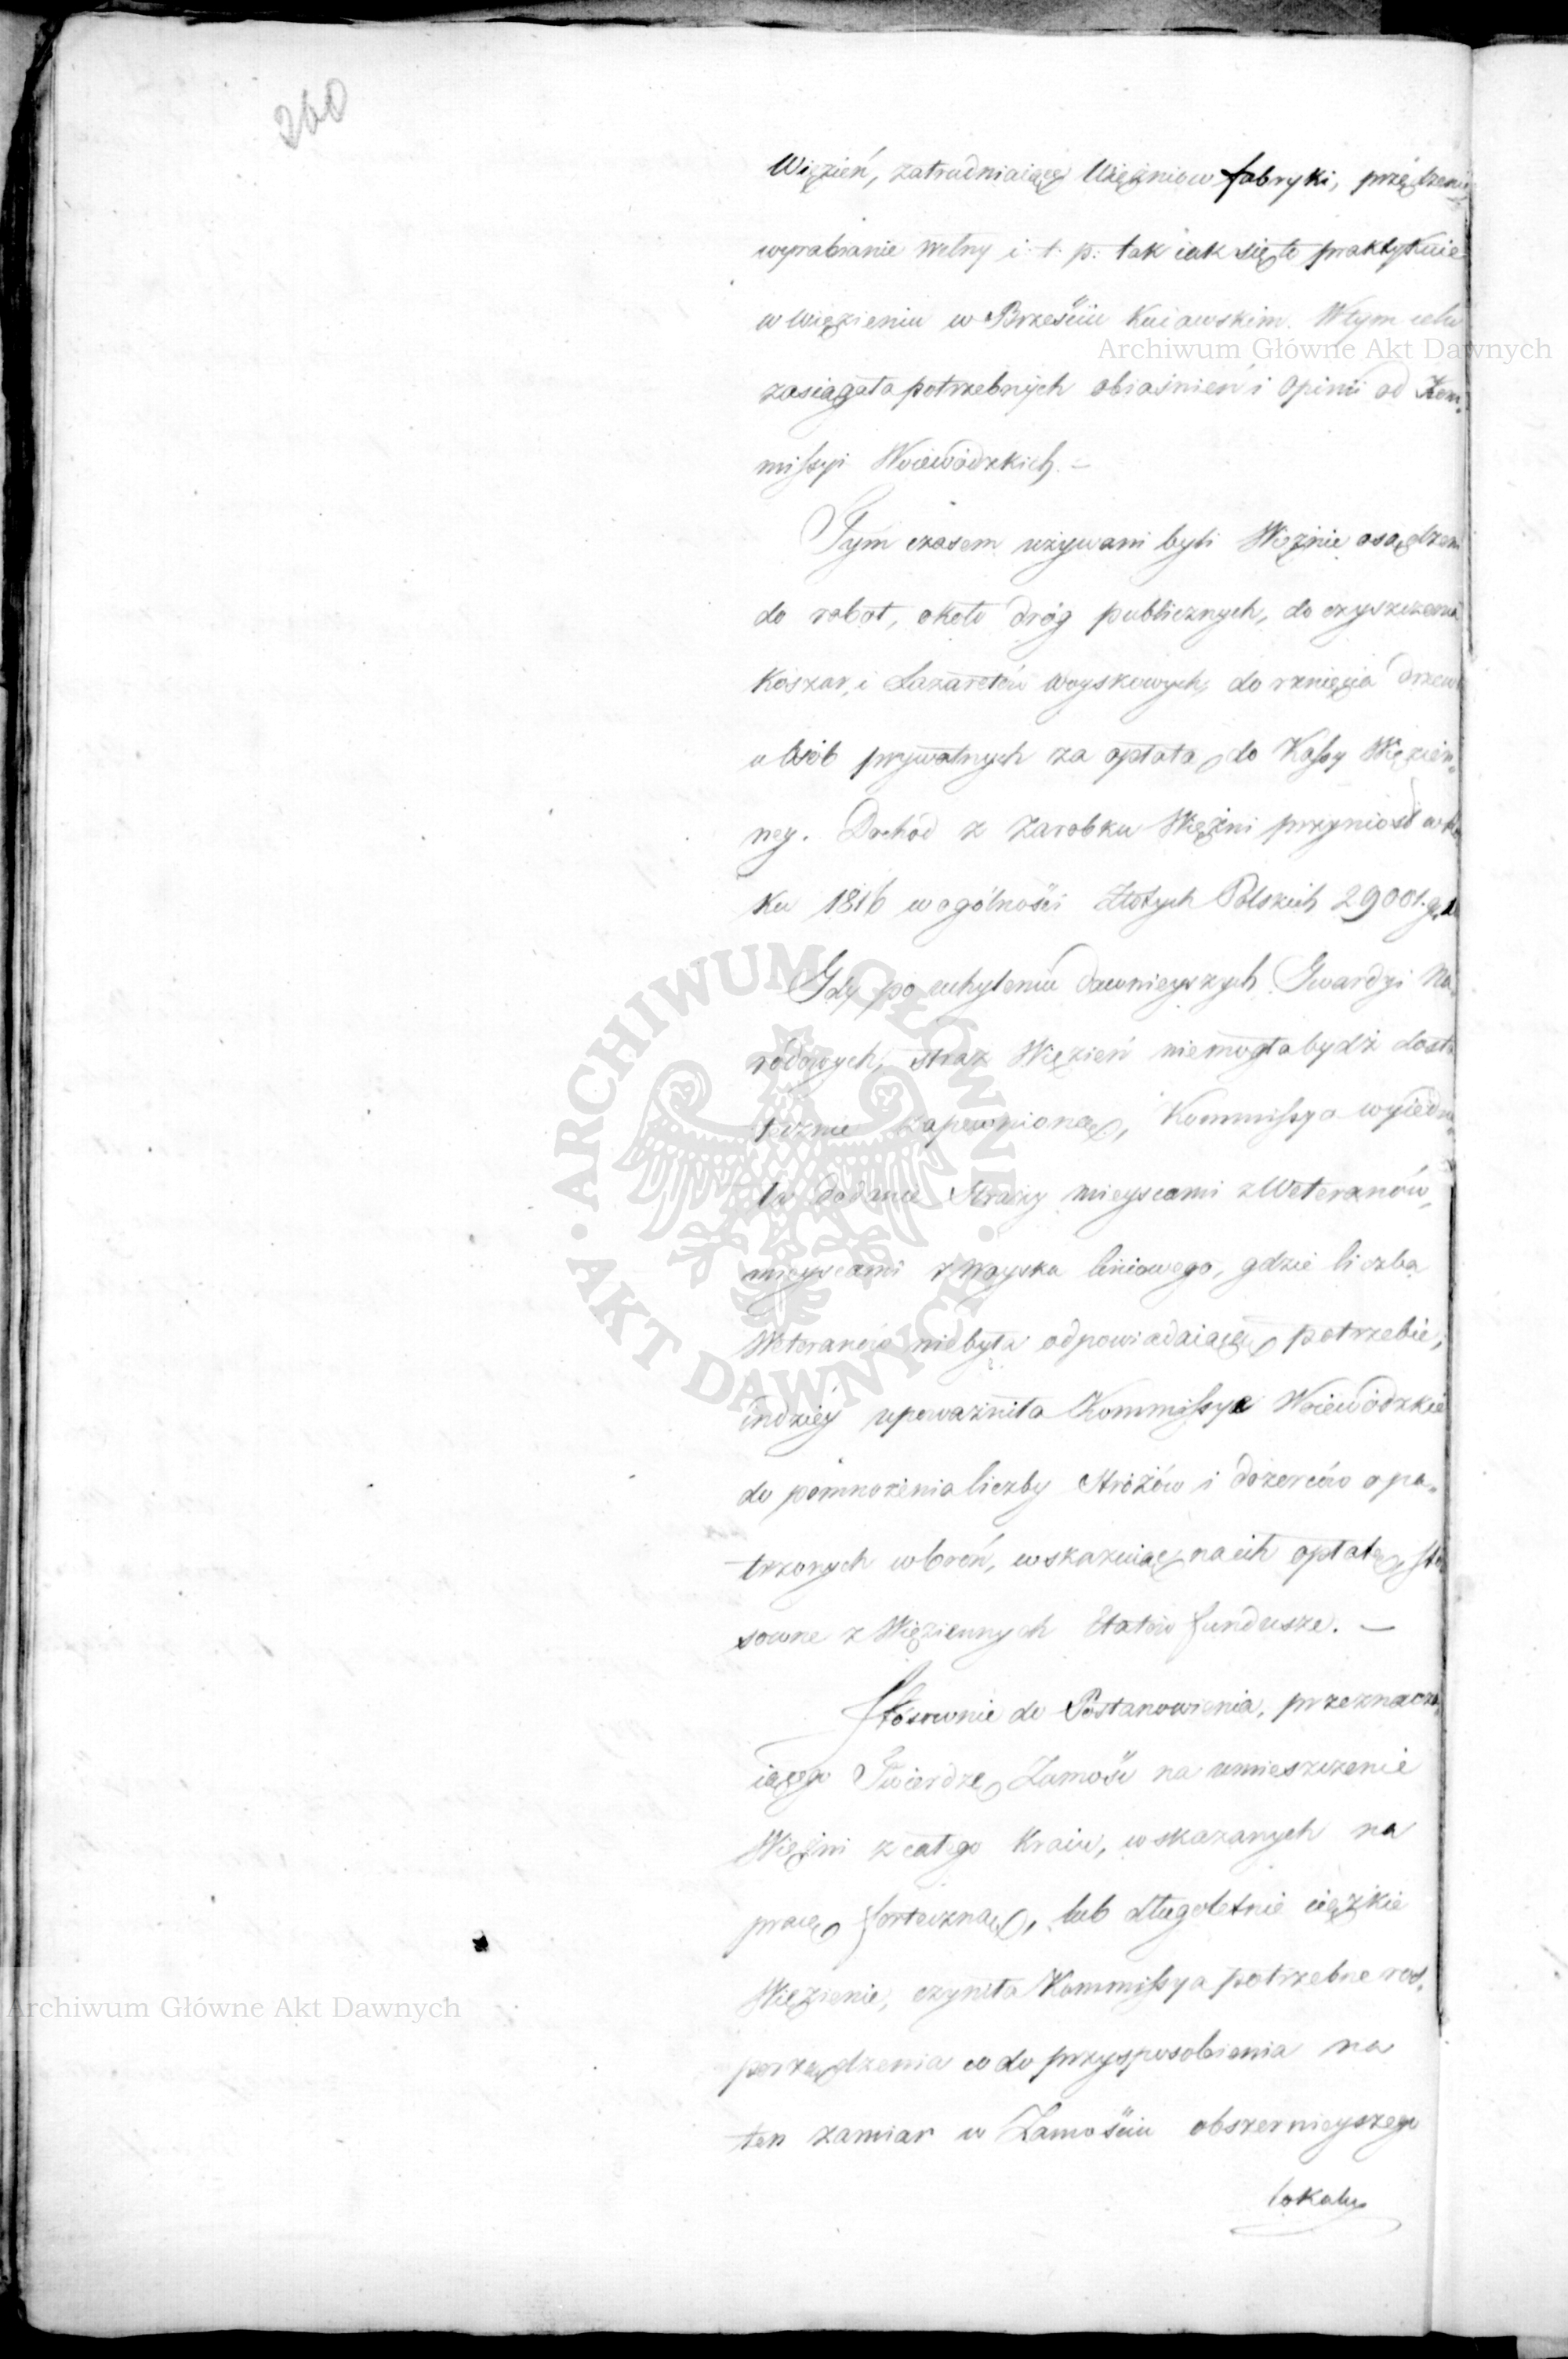 260
Więzień, zatrudniaiącey Więźniow fabryki, przędzenie
wyrabianie wełny i. t. p: tak iak się to praktykuie
w więzieniu w Brześciu Kuiawskim. W tym celu
zasiągała potrzebnych obiaśnień i Opinii od Kom„
missyi Woiewódzkich. –
Tym czasem używani byli Więźnie osądzeni
do robot, około dróg publicznych, do czyszczenia
Koszar, i Lazaretów woyskowych, do rznięcia drzewa
u osób prywatnych za opłatą do Kassy Więzien„
ney. Dochód z zarobku Więźni przyniósł w Ro
ku 1816 w ogólności Złotych Polskich 29001. gr.
Gdy po uchyleniu dawnieyszych Gwardyi Na„
rodowych, straż Więzień niemogła bydź dosta
tecznie zapewnioną, Kommissya wyiedna„
ła dodanie Straży mieyscami z Weteranów,
mieyscami z woyska liniowego, gdzie liczba
Weteranów niebyła odpowiadaiącą potrzebie,
indziéy upoważniła Kommissye Woiewódzkie
do pomnożenia liczby Stróżów i dozorców opa„
trzonych w broń, wskazuiąc na ich opłatę sto
sowne z Więziennych Etatów fundusze. —
Stosownie do Postanowienia, przeznacza„
iącego Twierdzę Zamość na umieszczenie
Więźni z całego Kraiu, wskazanych na
pracę forteczną, lub długoletnie ciężkie
Więzienie, czyniła Kommissya potrzebne roz„
porządzenia co do przysposobienia na
ten zamiar w Zamościu obszernieyszego
lokalu
Archiwum Główne Akt Dawnych
Archiwum Główne Akt Dawnych
ARCHIWUM GŁÓWNE · AKT DAWNYCH ·